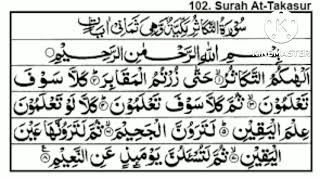 102. Surah At-Takasur
سُوْرَةُ التَّكَاثُرِ مَكِّيَّةٌ وَّهِيَ ثَمَانِيْ اٰيَاتٍ
KINEMASTER
بِسْمِ اللّٰهِ الرَّحْمٰنِ الرَّحِيْمِ
اَلْهٰىكُمُ التَّكَاثُرُ ۙ حَتّٰى زُرْتُمُ الْمَقَابِرَ ؕ كَلَّا سَوْفَ
تَعْلَمُوْنَ ۙ ثُمَّ كَلَّا سَوْفَ تَعْلَمُوْنَ ؕ كَلَّا لَوْ تَعْلَمُوْنَ
عِلْمَ الْيَقِيْنِ ؕ لَتَرَوُنَّ الْجَحِيْمَ ۙ ثُمَّ لَتَرَوُنَّهَا عَيْنَ
الْيَقِيْنِ ۙ ثُمَّ لَتُسْئَلُنَّ يَوْمَئِذٍ عَنِ النَّعِيْمِ ۸